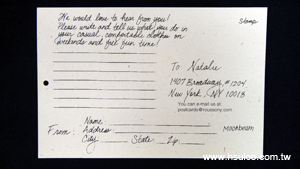 We would love to hear from you!
Please write and tell us what you do in
your casual, comfortable clothes on
weekends and feel fun time!
Stamp
To: Natalie
1407 Broadway #1204
New York, NY 10018
You can e-mail us at
Name
From: Address: Moonbeam
City State Zip